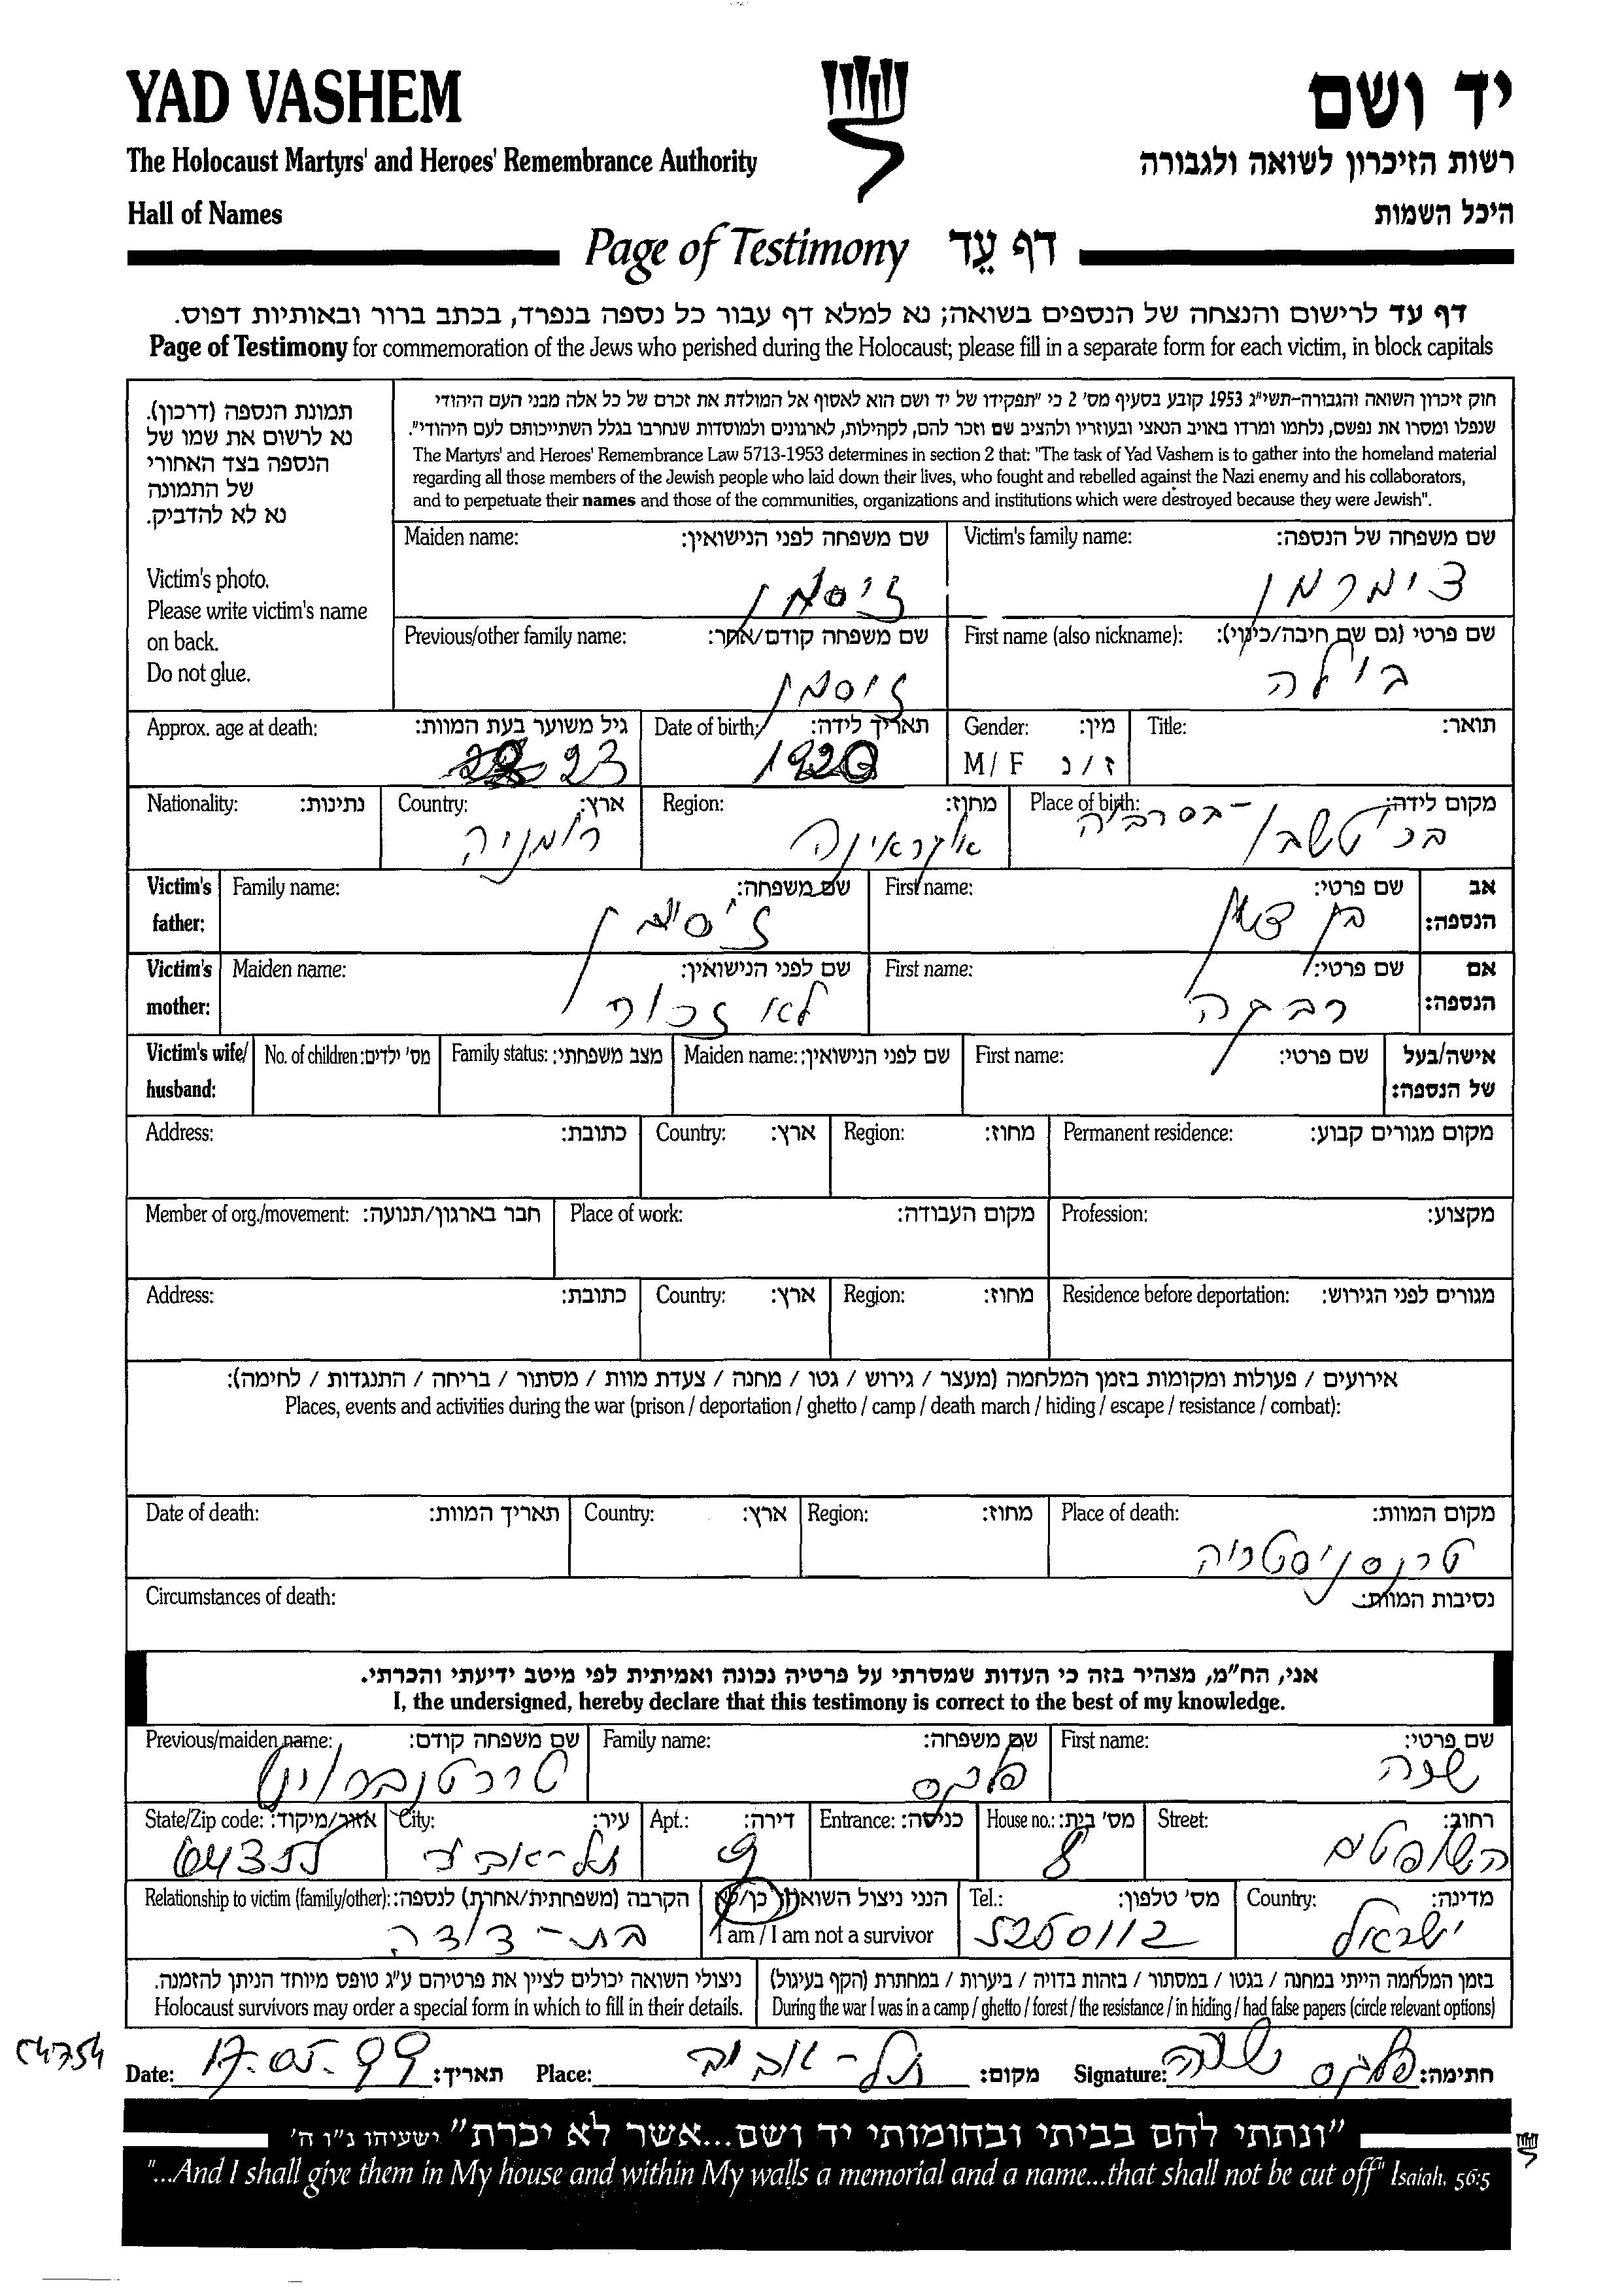 YAD VASHEM
יד ושם
The Holocaust Martyrs' and Heroes' Remembrance Authority
רשות הזיכרון לשואה ולגבורה
Hall of Names
היכל השמות
Page of Testimony דף עֵד
דף עד לרישום והנצחה של הנספים בשואה; נא למלא דף עבור כל נספה בנפרד, בכתב ברור ובאותיות דפוס.
Page of Testimony for commemoration of the Jews who perished during the Holocaust; please fill in a separate form for each victim, in block capitals
תמונת הנספה (דרכון).
נא לרשום את שמו של
הנספה בצד האחורי
של התמונה
נא לא להדביק.
Victim's photo.
Please write victim's name
on back.
Do not glue.
חוק זיכרון השואה והגבורה-תשי"ג 1953 קובע בסעיף מס' 2 כי "תפקידו של יד ושם הוא לאסוף אל המולדת את זכרם של כל אלה מבני העם היהודי
שנפלו ומסרו את נפשם, נלחמו ומרדו באויב הנאצי ובעוזריו ולהציב שם וזכר להם, לקהילות, לארגונים ולמוסדות שנחרבו בגלל השתייכותם לעם היהודי".
The Martyrs' and Heroes' Remembrance Law 5713-1953 determines in section 2 that: "The task of Yad Vashem is to gather into the homeland material
regarding all those members of the Jewish people who laid down their lives, who fought and rebelled against the Nazi enemy and his collaborators,
and to perpetuate their names and those of the communities, organizations and institutions which were destroyed because they were Jewish".
Victim's family name: שם משפחה של הנספה:
צימרמן
Maiden name: שם משפחה לפני הנישואין:
זיסמן
First name (also nickname): שם פרטי (גם שם חיבה/כינוי):
ביילה
Previous/other family name: שם משפחה קודם/אחר:
זיסמן
Title: תואר:
Gender: מין:
M / F ז / נ
Date of birth: תאריך לידה:
1920
Approx. age at death: גיל משוער בעת המוות:
23
Place of birth: מקום לידה:
בסרביה
Region: מחוז:
אוקראינה
Country: ארץ:
רומניה
Nationality: נתינות:
Victim's father: אב הנספה:
First name: שם פרטי:
בן ציון
Family name: שם משפחה:
זיסמן
Victim's mother: אם הנספה:
First name: שם פרטי:
רבקה
Maiden name: שם לפני הנישואין:
לא זכור
Victim's wife/husband: אישה/בעל של הנספה:
First name: שם פרטי:
Maiden name: שם לפני הנישואין:
Family status: מצב משפחתי:
No. of children: מס' ילדים:
Permanent residence: מקום מגורים קבוע:
Region: מחוז:
Country: ארץ:
Address: כתובת:
Profession: מקצוע:
Place of work: מקום העבודה:
Member of org./movement: חבר בארגון/תנועה:
Residence before deportation: מגורים לפני הגירוש:
Region: מחוז:
Country: ארץ:
Address: כתובת:
אירועים / פעולות ומקומות בזמן המלחמה (מעצר / גירוש / גטו / מחנה / צעדת מוות / מסתור / בריחה / התנגדות / לחימה):
Places, events and activities during the war (prison / deportation / ghetto / camp / death march / hiding / escape / resistance / combat):
Place of death: מקום המוות:
טרנסניסטריה
Region: מחוז:
Country: ארץ:
Date of death: תאריך המוות:
Circumstances of death: נסיבות המוות:
אני, הח"מ, מצהיר בזה כי העדות שמסרתי על פרטיה נכונה ואמיתית לפי מיטב ידיעתי והכרתי.
I, the undersigned, hereby declare that this testimony is correct to the best of my knowledge.
First name: שם פרטי:
שנה
Family name: שם משפחה:
פוקס
Previous/maiden name: שם משפחה קודם:
Street: רחוב:
השופטים
House no.: מס' בית:
8
Entrance: כניסה:
Apt.: דירה:
9
City: עיר:
תל-אביב
State/Zip code: אזור/מיקוד:
64355
Country: מדינה:
ישראל
Tel.: מס' טלפון:
5260112
הנני ניצול השואה: כן/לא
I am / I am not a survivor
Relationship to victim (family/other): הקרבה (משפחתית/אחרת) לנספה:
בת-דודה
בזמן המלחמה הייתי במחנה / בגטו / במסתור / בזהות בדויה / ביערות / במחתרת (הקף בעיגול)
During the war I was in a camp / ghetto / forest / the resistance / in hiding / had false papers (circle relevant options)
ניצולי השואה יכולים לציין את פרטיהם ע"ג טופס מיוחד הניתן להזמנה.
Holocaust survivors may order a special form in which to fill in their details.
Date: 17.05.99 תאריך:
Place: תל-אביב מקום:
Signature: פוקס שנה חתימה:
"ונתתי להם בביתי ובחומותי יד ושם...אשר לא יכרת" ישעיהו נ"ו ה'
"...And I shall give them in My house and within My walls a memorial and a name...that shall not be cut off" Isaiah, 56:5